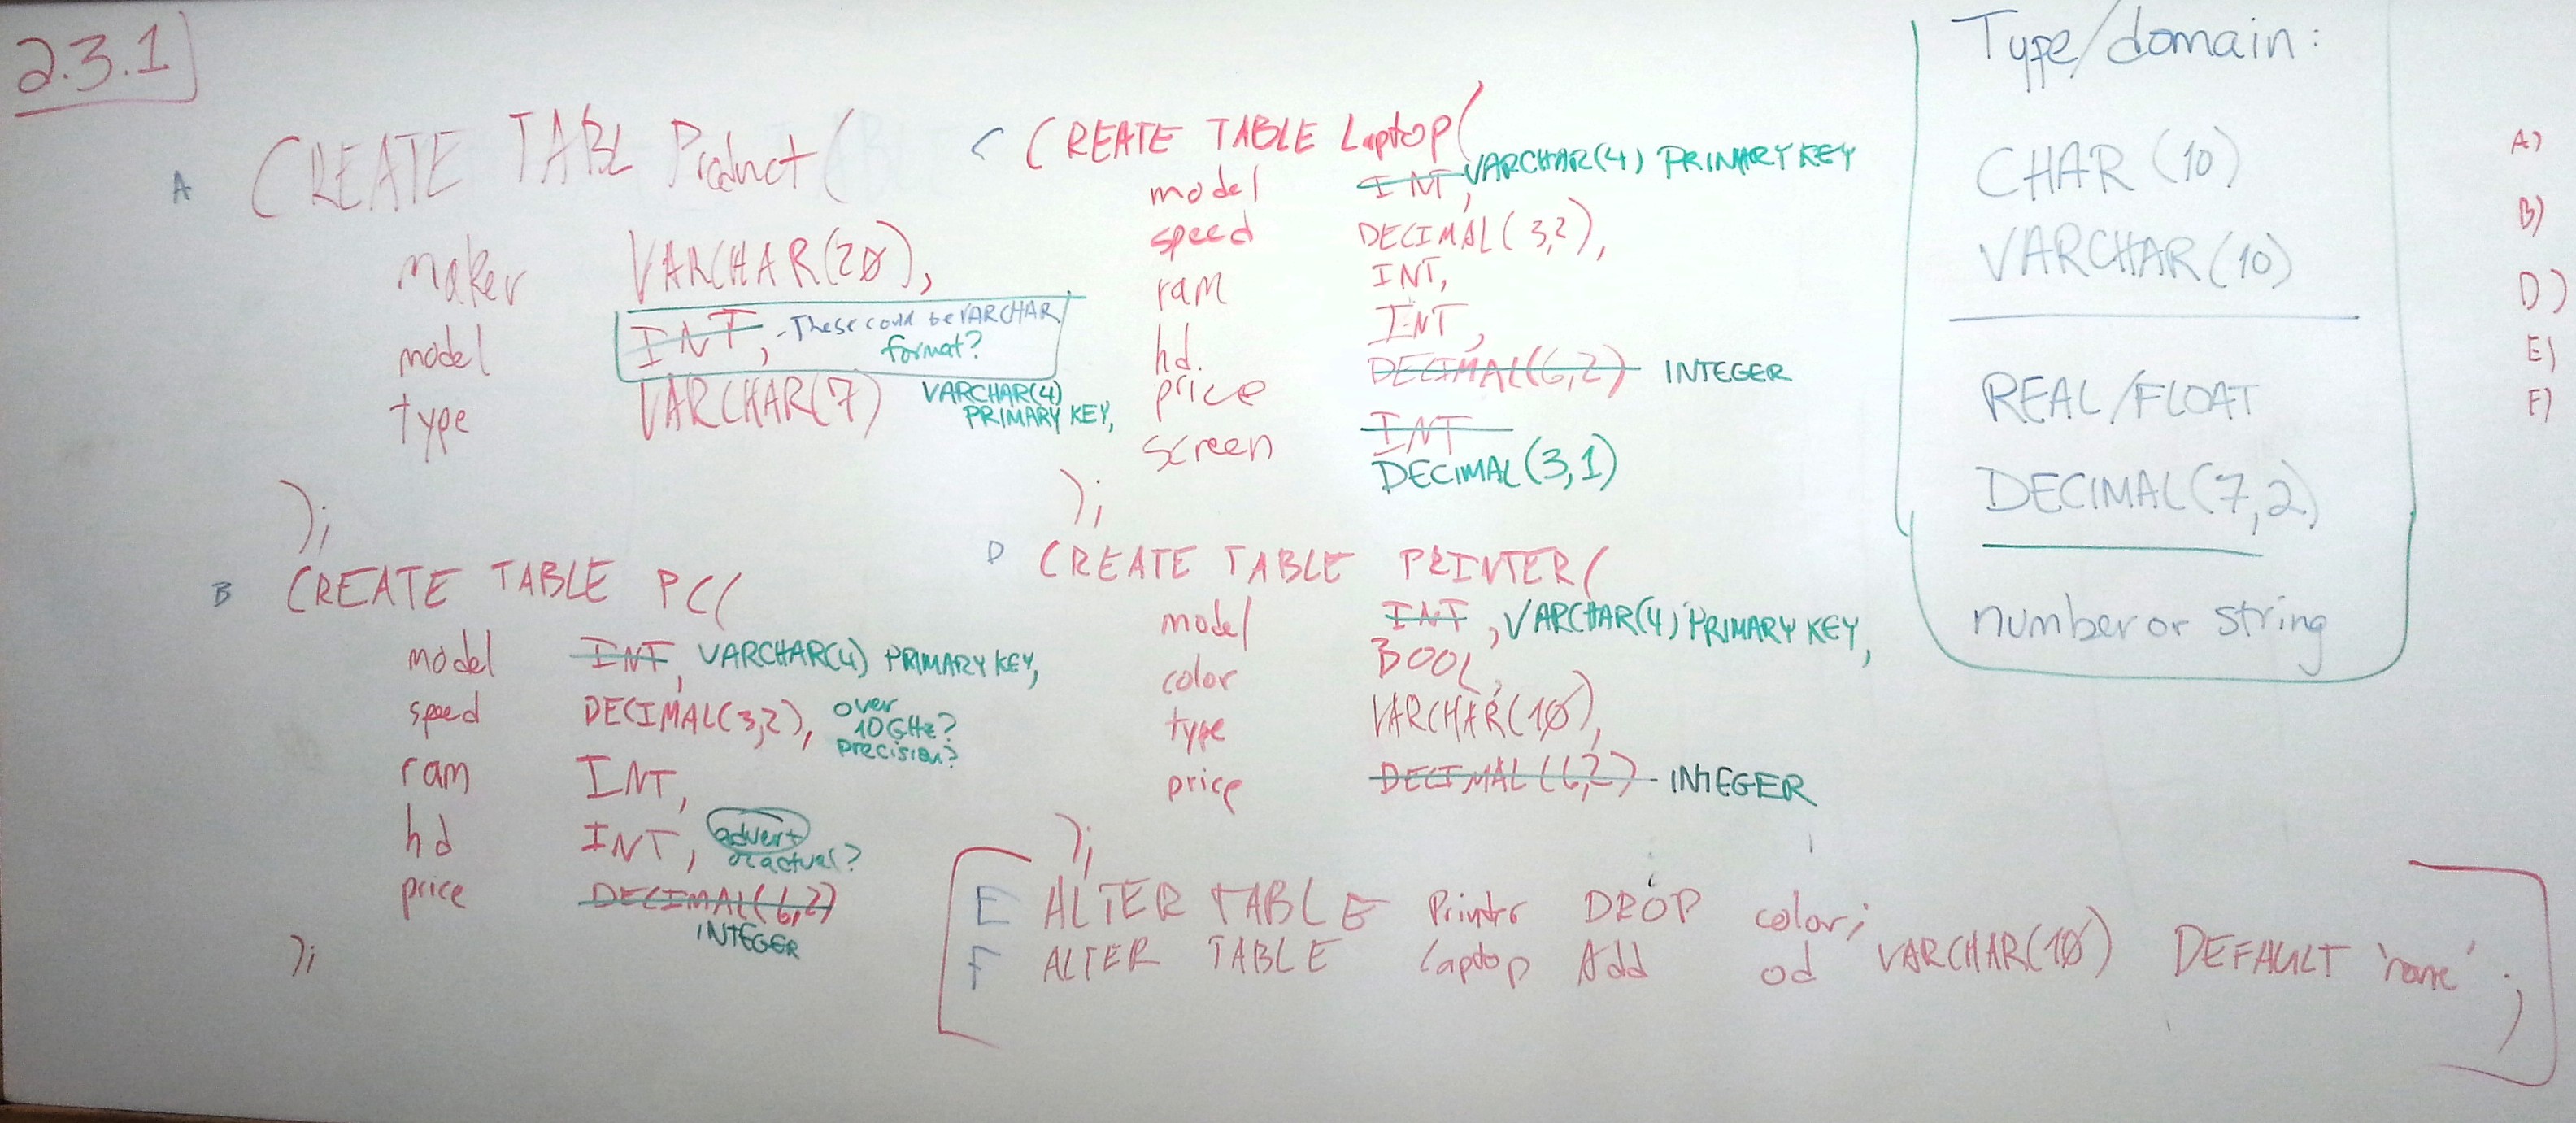 2.3.1
A CREATE TABL Product(
maker VARCHAR(20),
model INT, - These could be VARCHAR
format?
type VARCHAR(7) VARCHAR(4)
PRIMARY KEY,
);
B CREATE TABLE PC(
model INT, VARCHAR(4) PRIMARY KEY,
speed DECIMAL(3,2), over
10GHz?
precision?
ram INT,
hd INT, advert
or actual?
price DECIMAL(6,2)
INTEGER
);
C CREATE TABLE Laptop(
model INT, VARCHAR(4) PRIMARY KEY
speed DECIMAL(3,2),
ram INT,
hd. INT,
price DECIMAL(6,2) INTEGER
screen INT
DECIMAL(3,1)
);
D CREATE TABLE PRINTER(
model INT, VARCHAR(4) PRIMARY KEY,
color BOOL,
type VARCHAR(10),
price DECIMAL(6,2) - INTEGER
);
E ALTER TABLE Printer DROP color;
F ALTER TABLE laptop Add od VARCHAR(10) DEFAULT 'none';
Type/domain:
CHAR(10)
VARCHAR(10)
REAL/FLOAT
DECIMAL(7,2)
number or string
A)
B)
D)
E)
F)